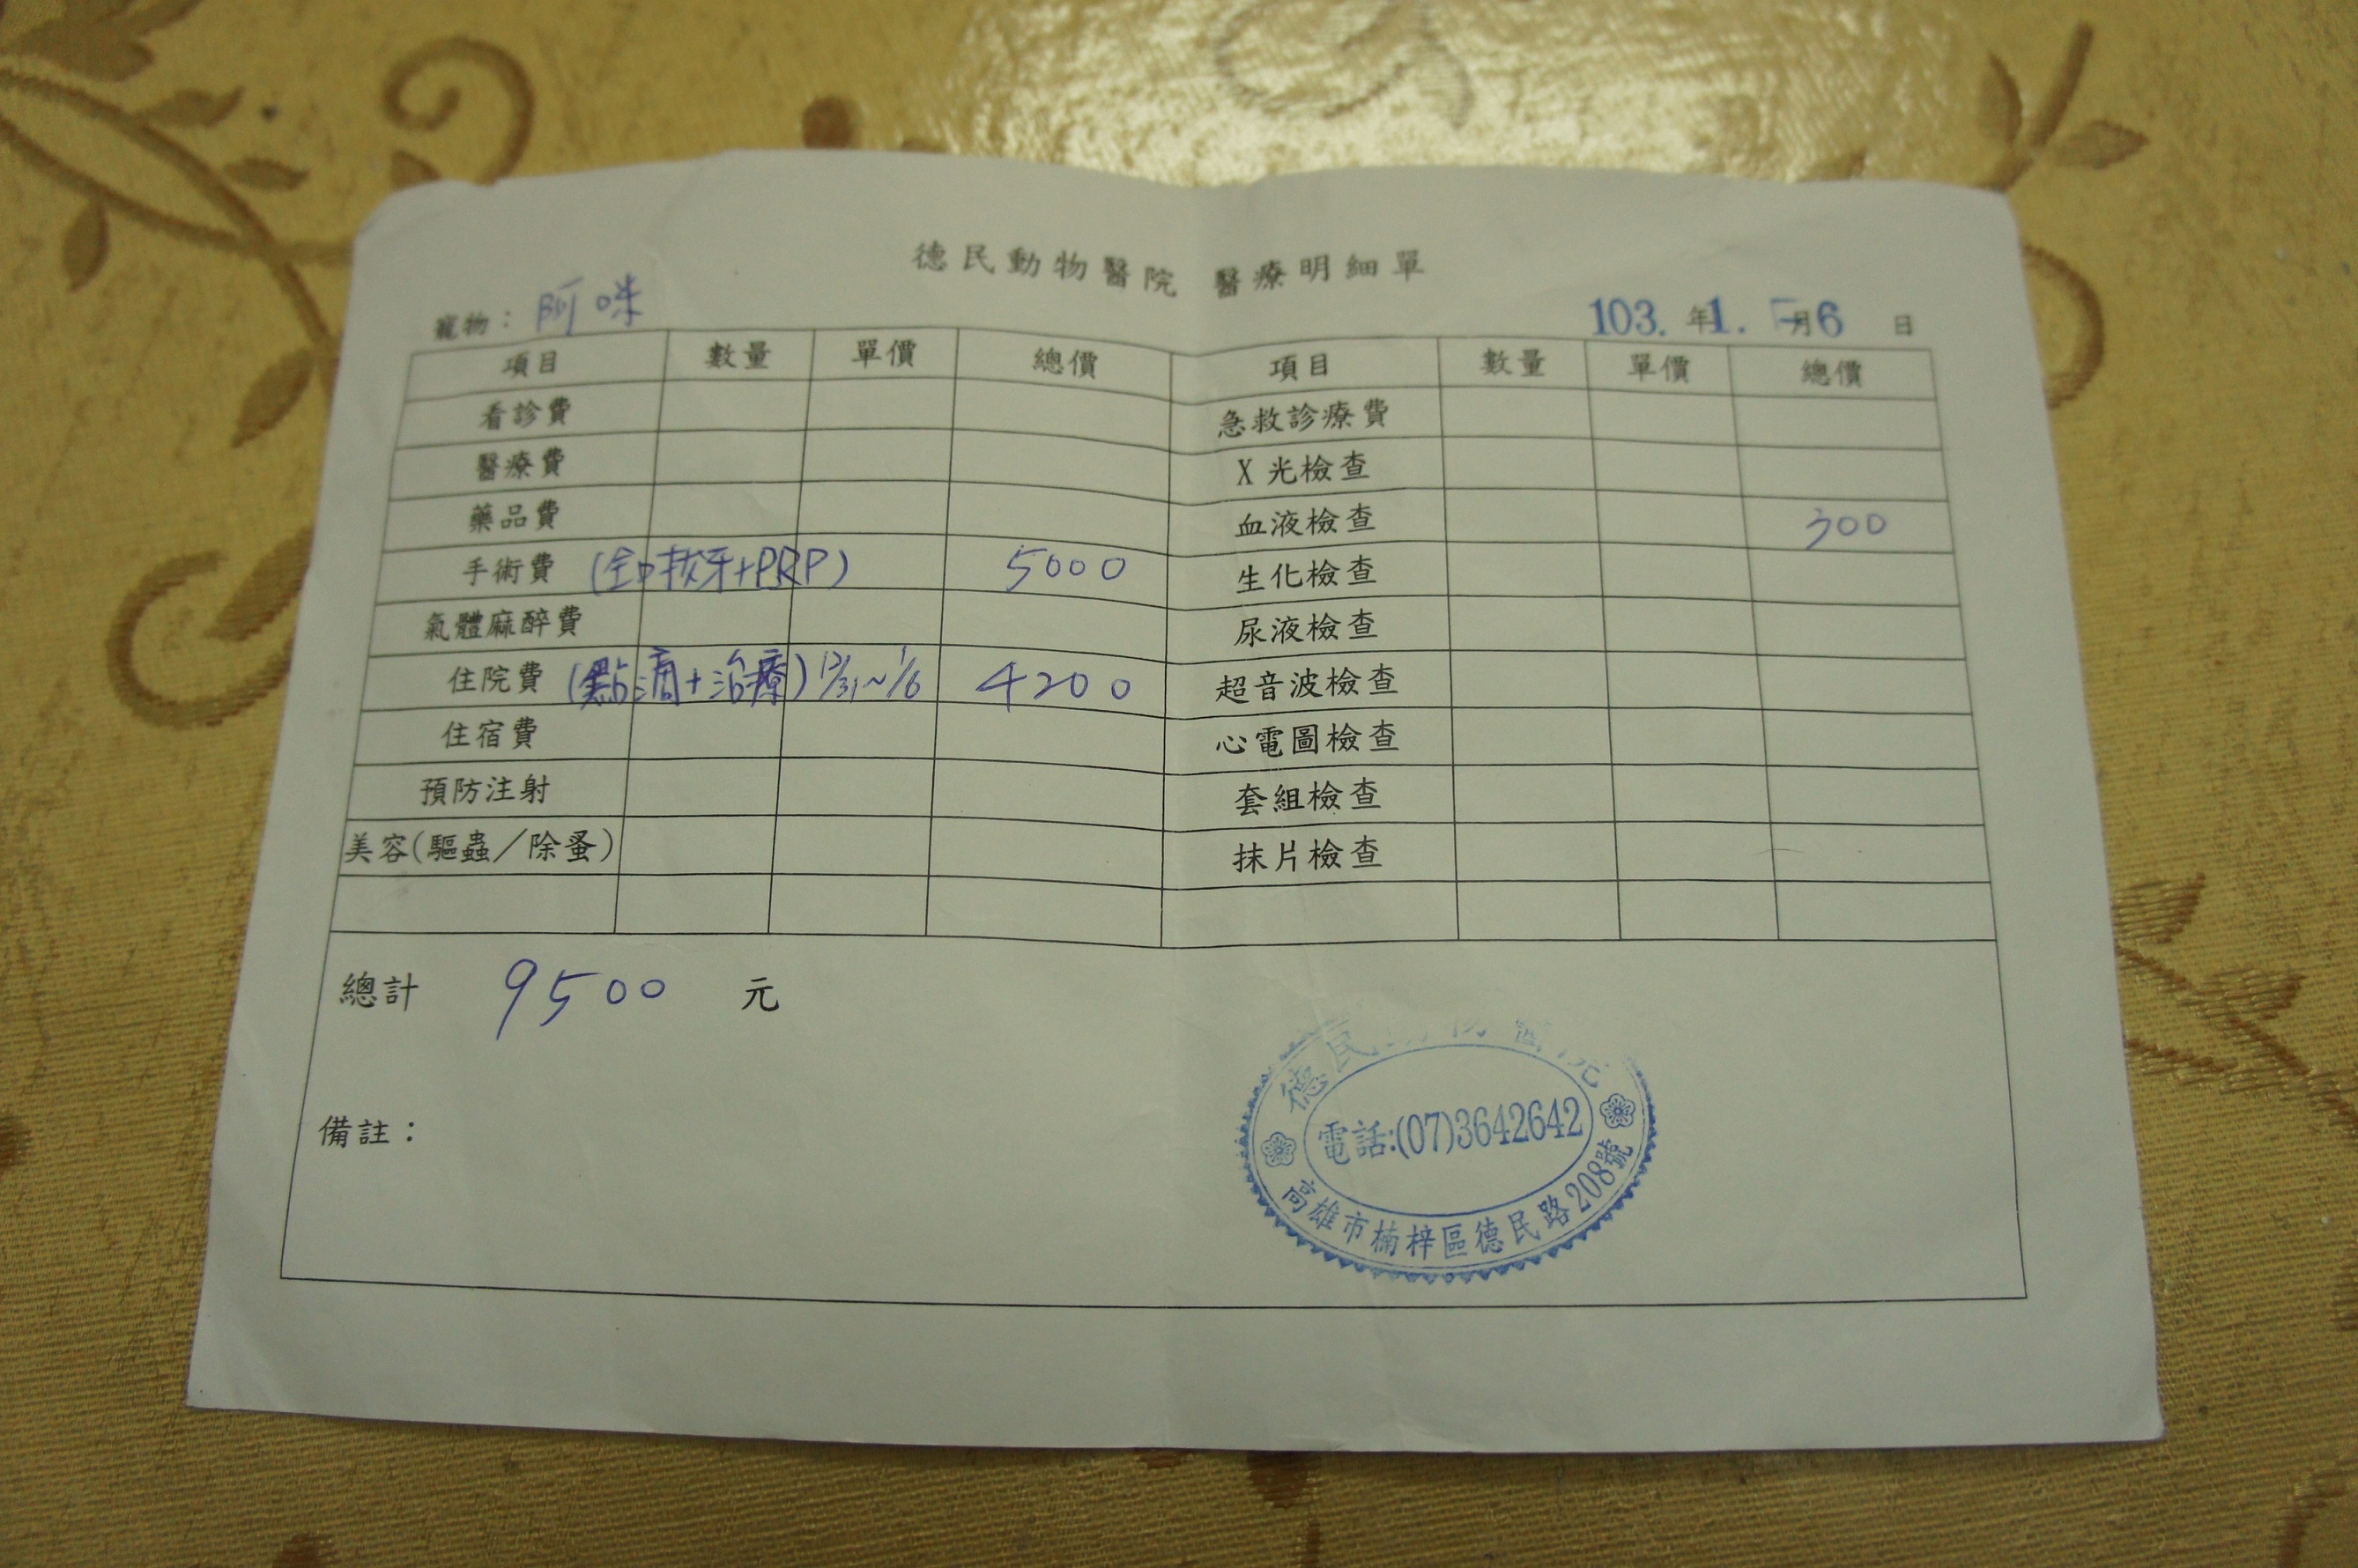 德民動物醫院 醫療明細單
寵物： 阿咪
103. 年 1. 月 6 日
項目 數量 單價 總價 項目 數量 單價 總價
看診費 急救診療費
醫療費 X 光檢查
藥品費 血液檢查 300
手術費 (全口拔牙+PRP) 5000 生化檢查
氣體麻醉費 尿液檢查
住院費 (點滴+治療) 12/31~1/6 4200 超音波檢查
住宿費 心電圖檢查
預防注射 套組檢查
美容(驅蟲／除蚤) 抹片檢查
總計 9500 元
備註：
德民動物醫院
電話:(07)3642642
高雄市楠梓區德民路208號